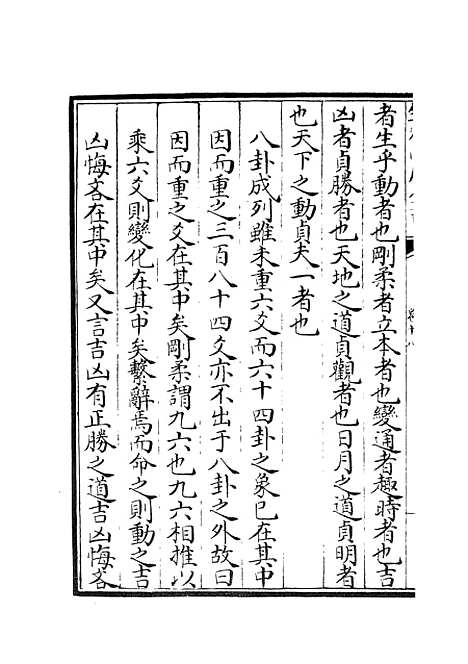 者生乎動者也剛柔者立本者也變通者趣時者也吉
凶者貞勝者也天地之道貞觀者也日月之道貞明者
也天下之動貞夫一者也
八卦成列雖未重六爻而六十四卦之象已在其中
因而重之三百八十四爻亦不出于八卦之外故曰
因而重之爻在其中矣剛柔謂九六也九六相推以
乘六爻則變化在其中矣繫辭焉而命之則動之吉
凶悔吝在其中矣又言吉凶有正勝之道吉凶悔吝